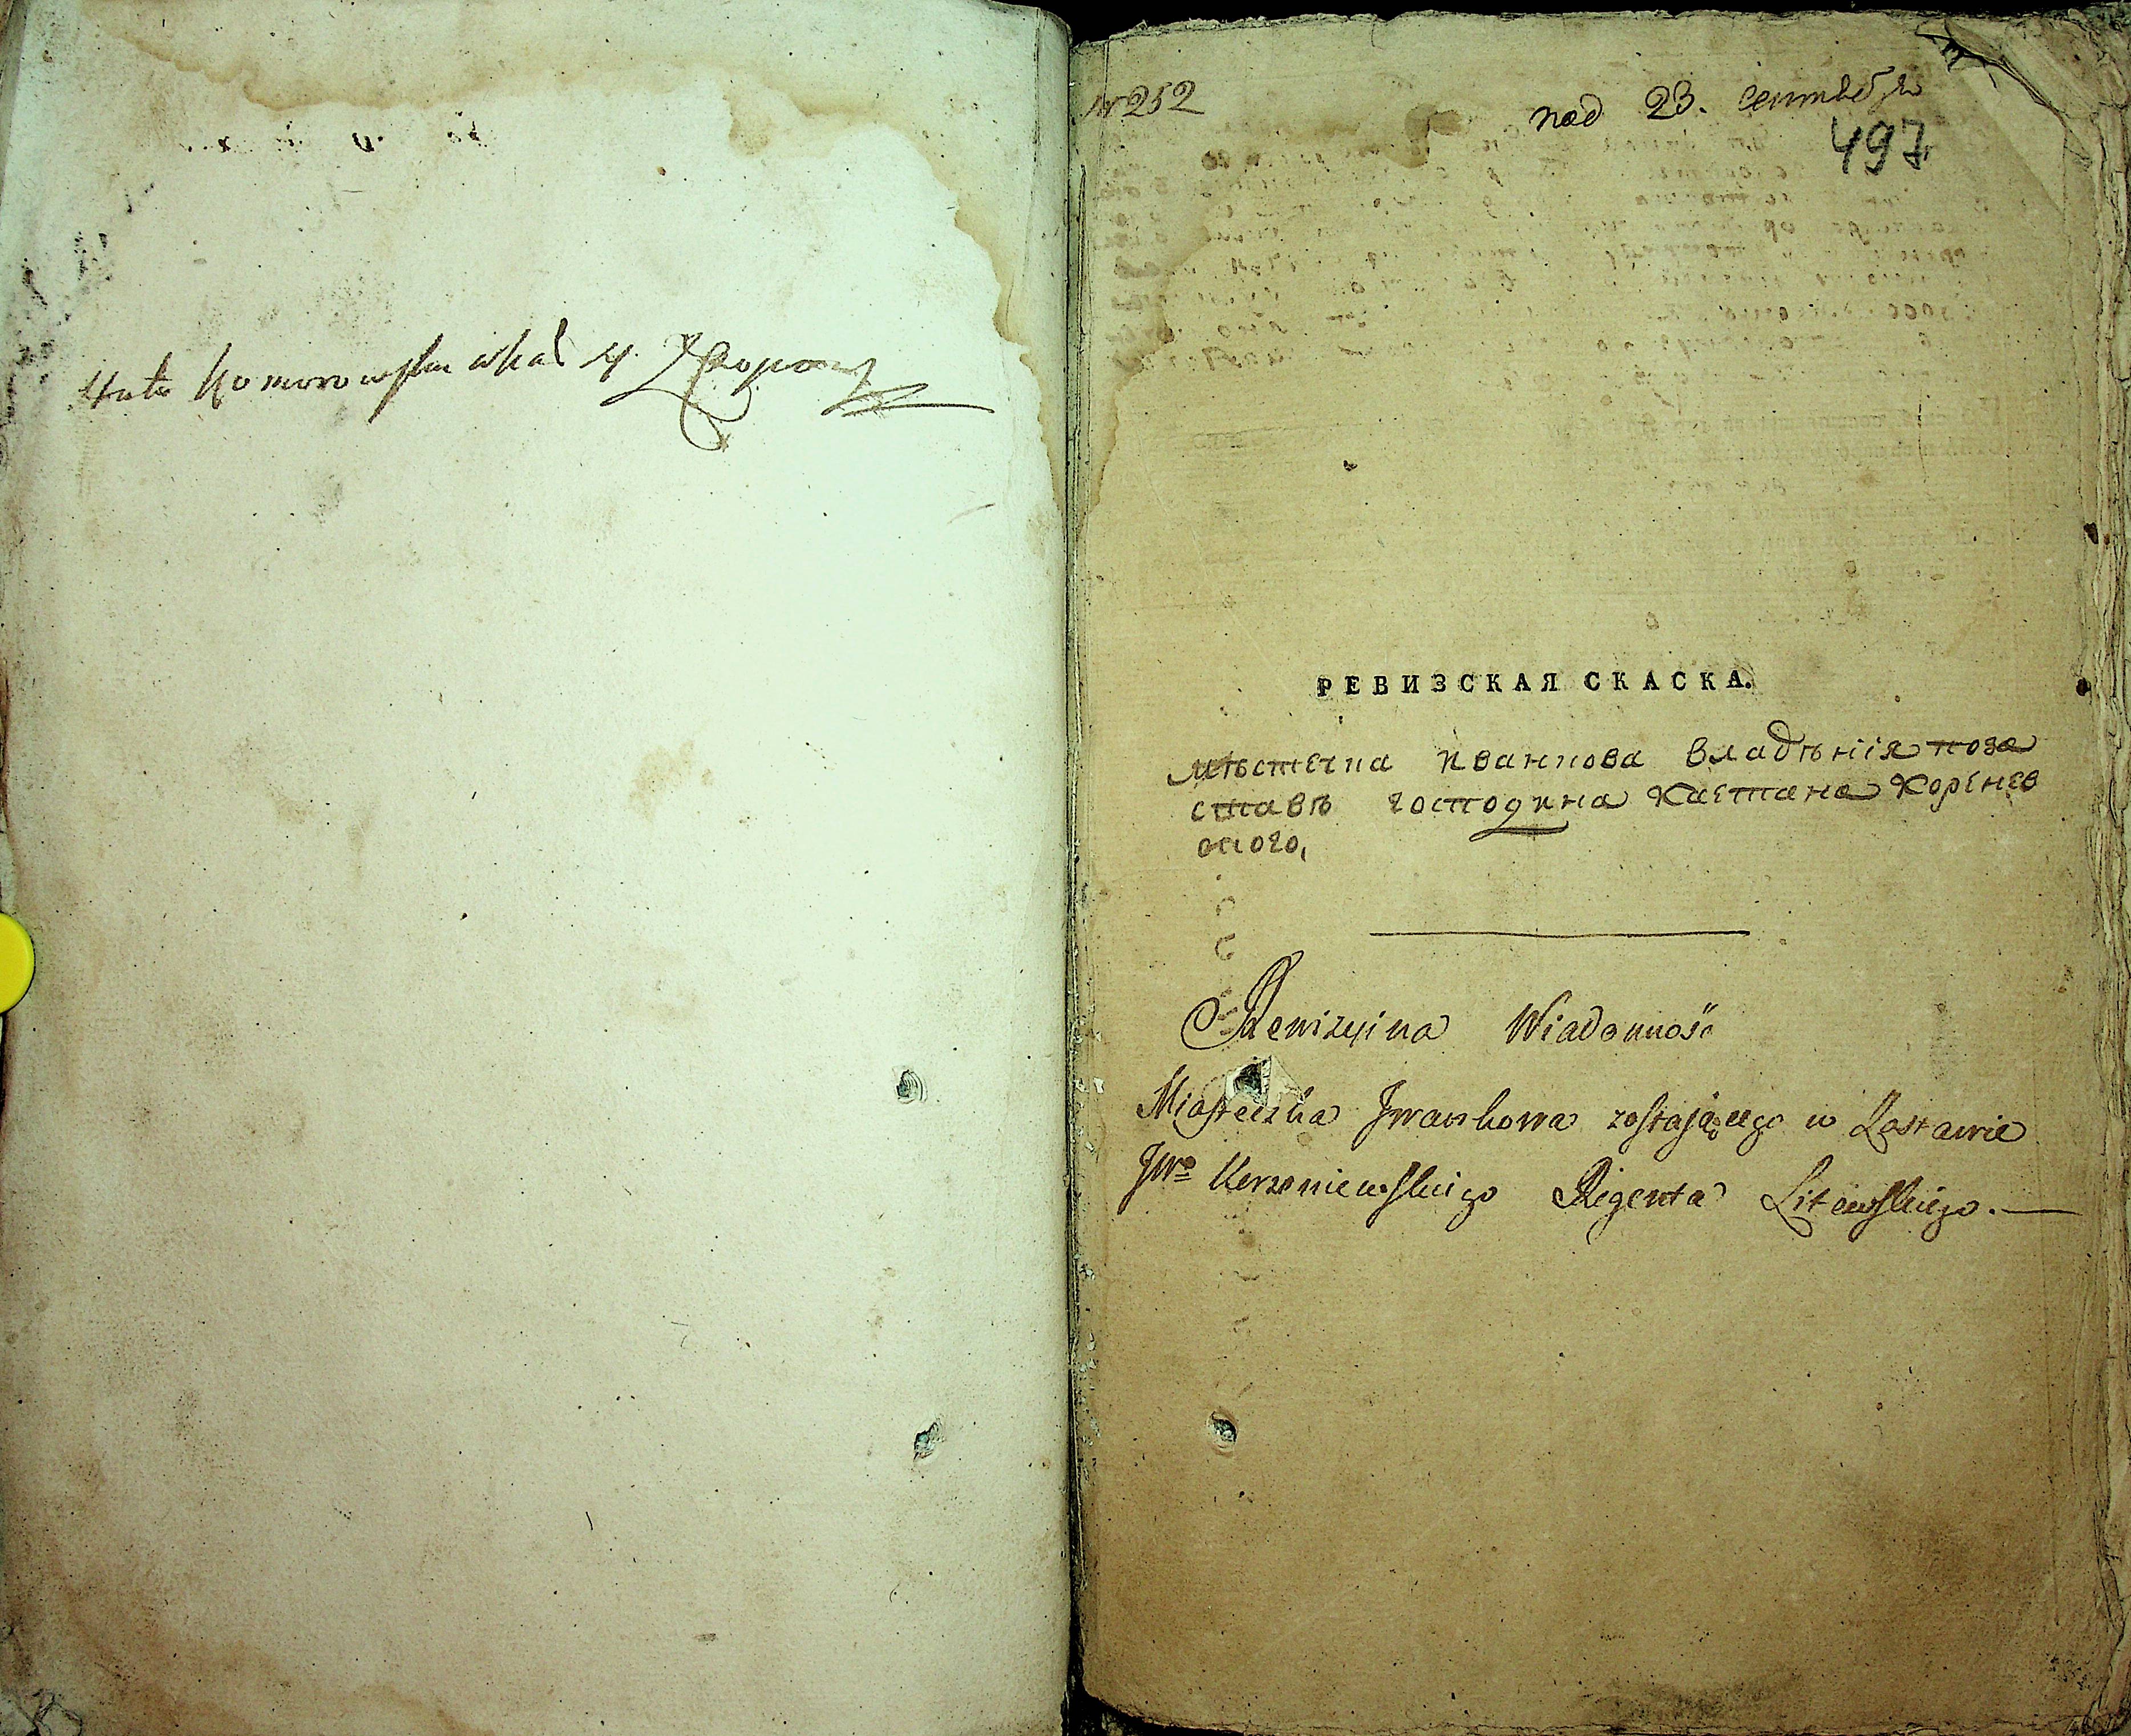 № 252
под 23. сентября
497
РЕВИЗСКАЯ СКАСКА.
мѣстечка Иванкова владѣнїя поза
ставѣ господина Каетана Коренев
ского,
Rewizyina Wiadomość
Miasteczka Jwankowa zostaiącego w Zastawie
JWo Korzeniewskiego Rigenta Litewskiego.